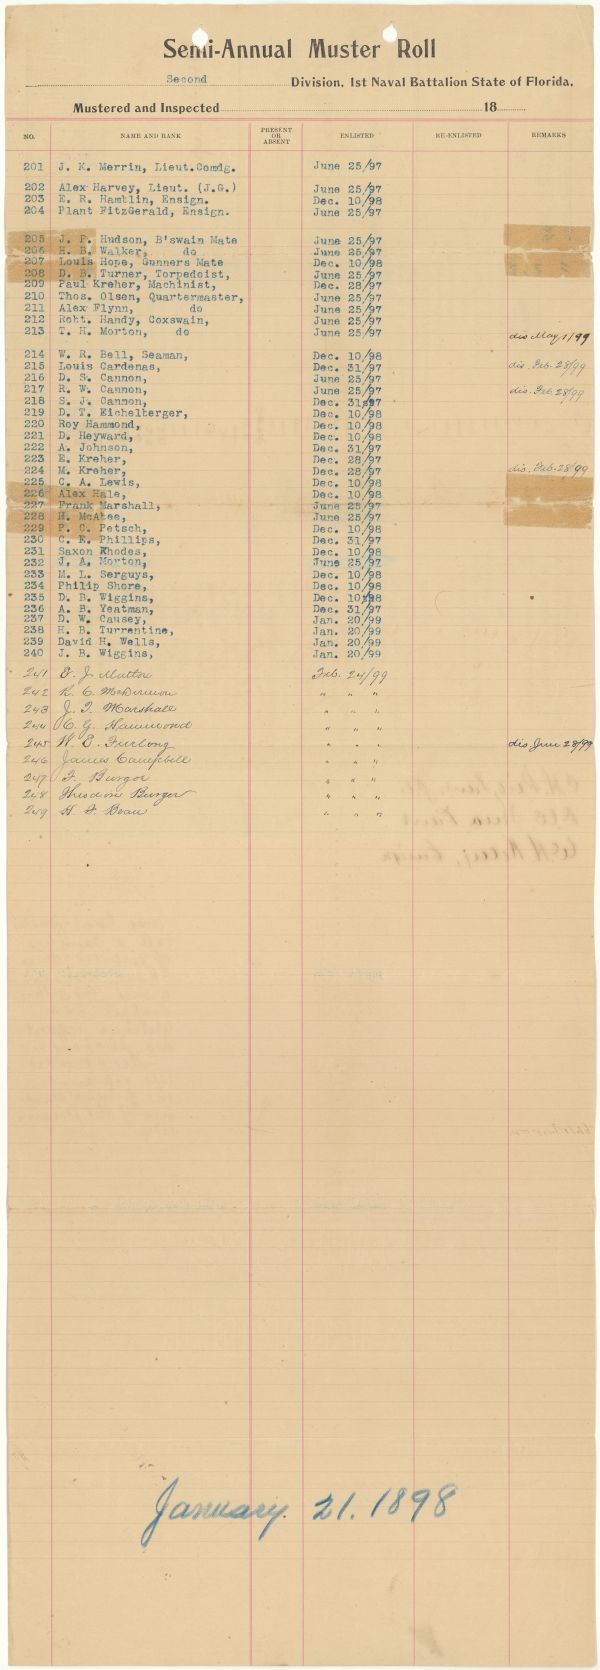 Semi-Annual Muster Roll
Second Division, 1st Naval Battalion State of Florida.
Mustered and Inspected 18
NO. NAME AND RANK PRESENT OR ABSENT ENLISTED RE-ENLISTED REMARKS
201 J. K. Merrin, Lieut.Comdg. June 25/97
202 Alex Harvey, Lieut. (J.G.) June 25/97
203 E. R. Hamblin, Ensign. Dec. 10/98
204 Plant FitzGerald, Ensign. June 25/97
205 J. P. Hudson, B'swain Mate June 25/97
206 H. B. Walker, do June 25/97
207 Louis Hope, Gunners Mate Dec. 10/98
208 D. B. Turner, Torpedoist, June 25/97
209 Paul Kreher, Machinist, Dec. 28/97
210 Thos. Olsen, Quartermaster, June 25/97
211 Alex Flynn, do June 25/97
212 Robt. Handy, Coxswain, June 25/97
213 T. H. Morton, do June 25/97 dis May 1/99
214 W. R. Bell, Seaman, Dec. 10/98
215 Louis Cardenas, Dec. 31/97 dis. Feb. 28/99
216 D. S. Cannon, June 25/97
217 R. W. Cannon, June 25/97 dis. Feb. 28/99
218 S. J. Cannon, Dec. 31/97
219 D. T. Eichelberger, Dec. 10/98
220 Roy Hammond, Dec. 10/98
221 D. Heyward, Dec. 10/98
222 A. Johnson, Dec. 31/97
223 E. Kreher, Dec. 28/97
224 M. Kreher, Dec. 28/97 dis. Feb. 28/99
225 C. A. Lewis, Dec. 10/98
226 Alex Hale, Dec. 10/98
227 Frank Marshall, June 25/97
228 H. McAtee, June 25/97
229 P. C. Petsch, Dec. 10/98
230 C. E. Phillips, Dec. 31/97
231 Saxon Rhodes, Dec. 10/98
232 J. A. Morton, June 25/97
233 M. L. Serguys, Dec. 10/98
234 Philip Shore, Dec. 10/98
235 D. B. Wiggins, Dec. 10/98
236 A. B. Yeatman, Dec. 31/97
237 D. W. Causey, Jan. 20/99
238 H. B. Turrentine, Jan. 20/99
239 David H. Wells, Jan. 20/99
240 J. B. Wiggins, Jan. 20/99
241 J. Feb. 24/99
242 R. C. McDermon " " "
243 J. T. Marshall " " "
244 C. G. Hammond " " "
245 W. E. Furlong " " " dis June 28/99
246 James Campbell " " "
247 F. Burger " " "
248 Theodore Burger " " "
249 H. F. Bean " " "
January 21. 1898